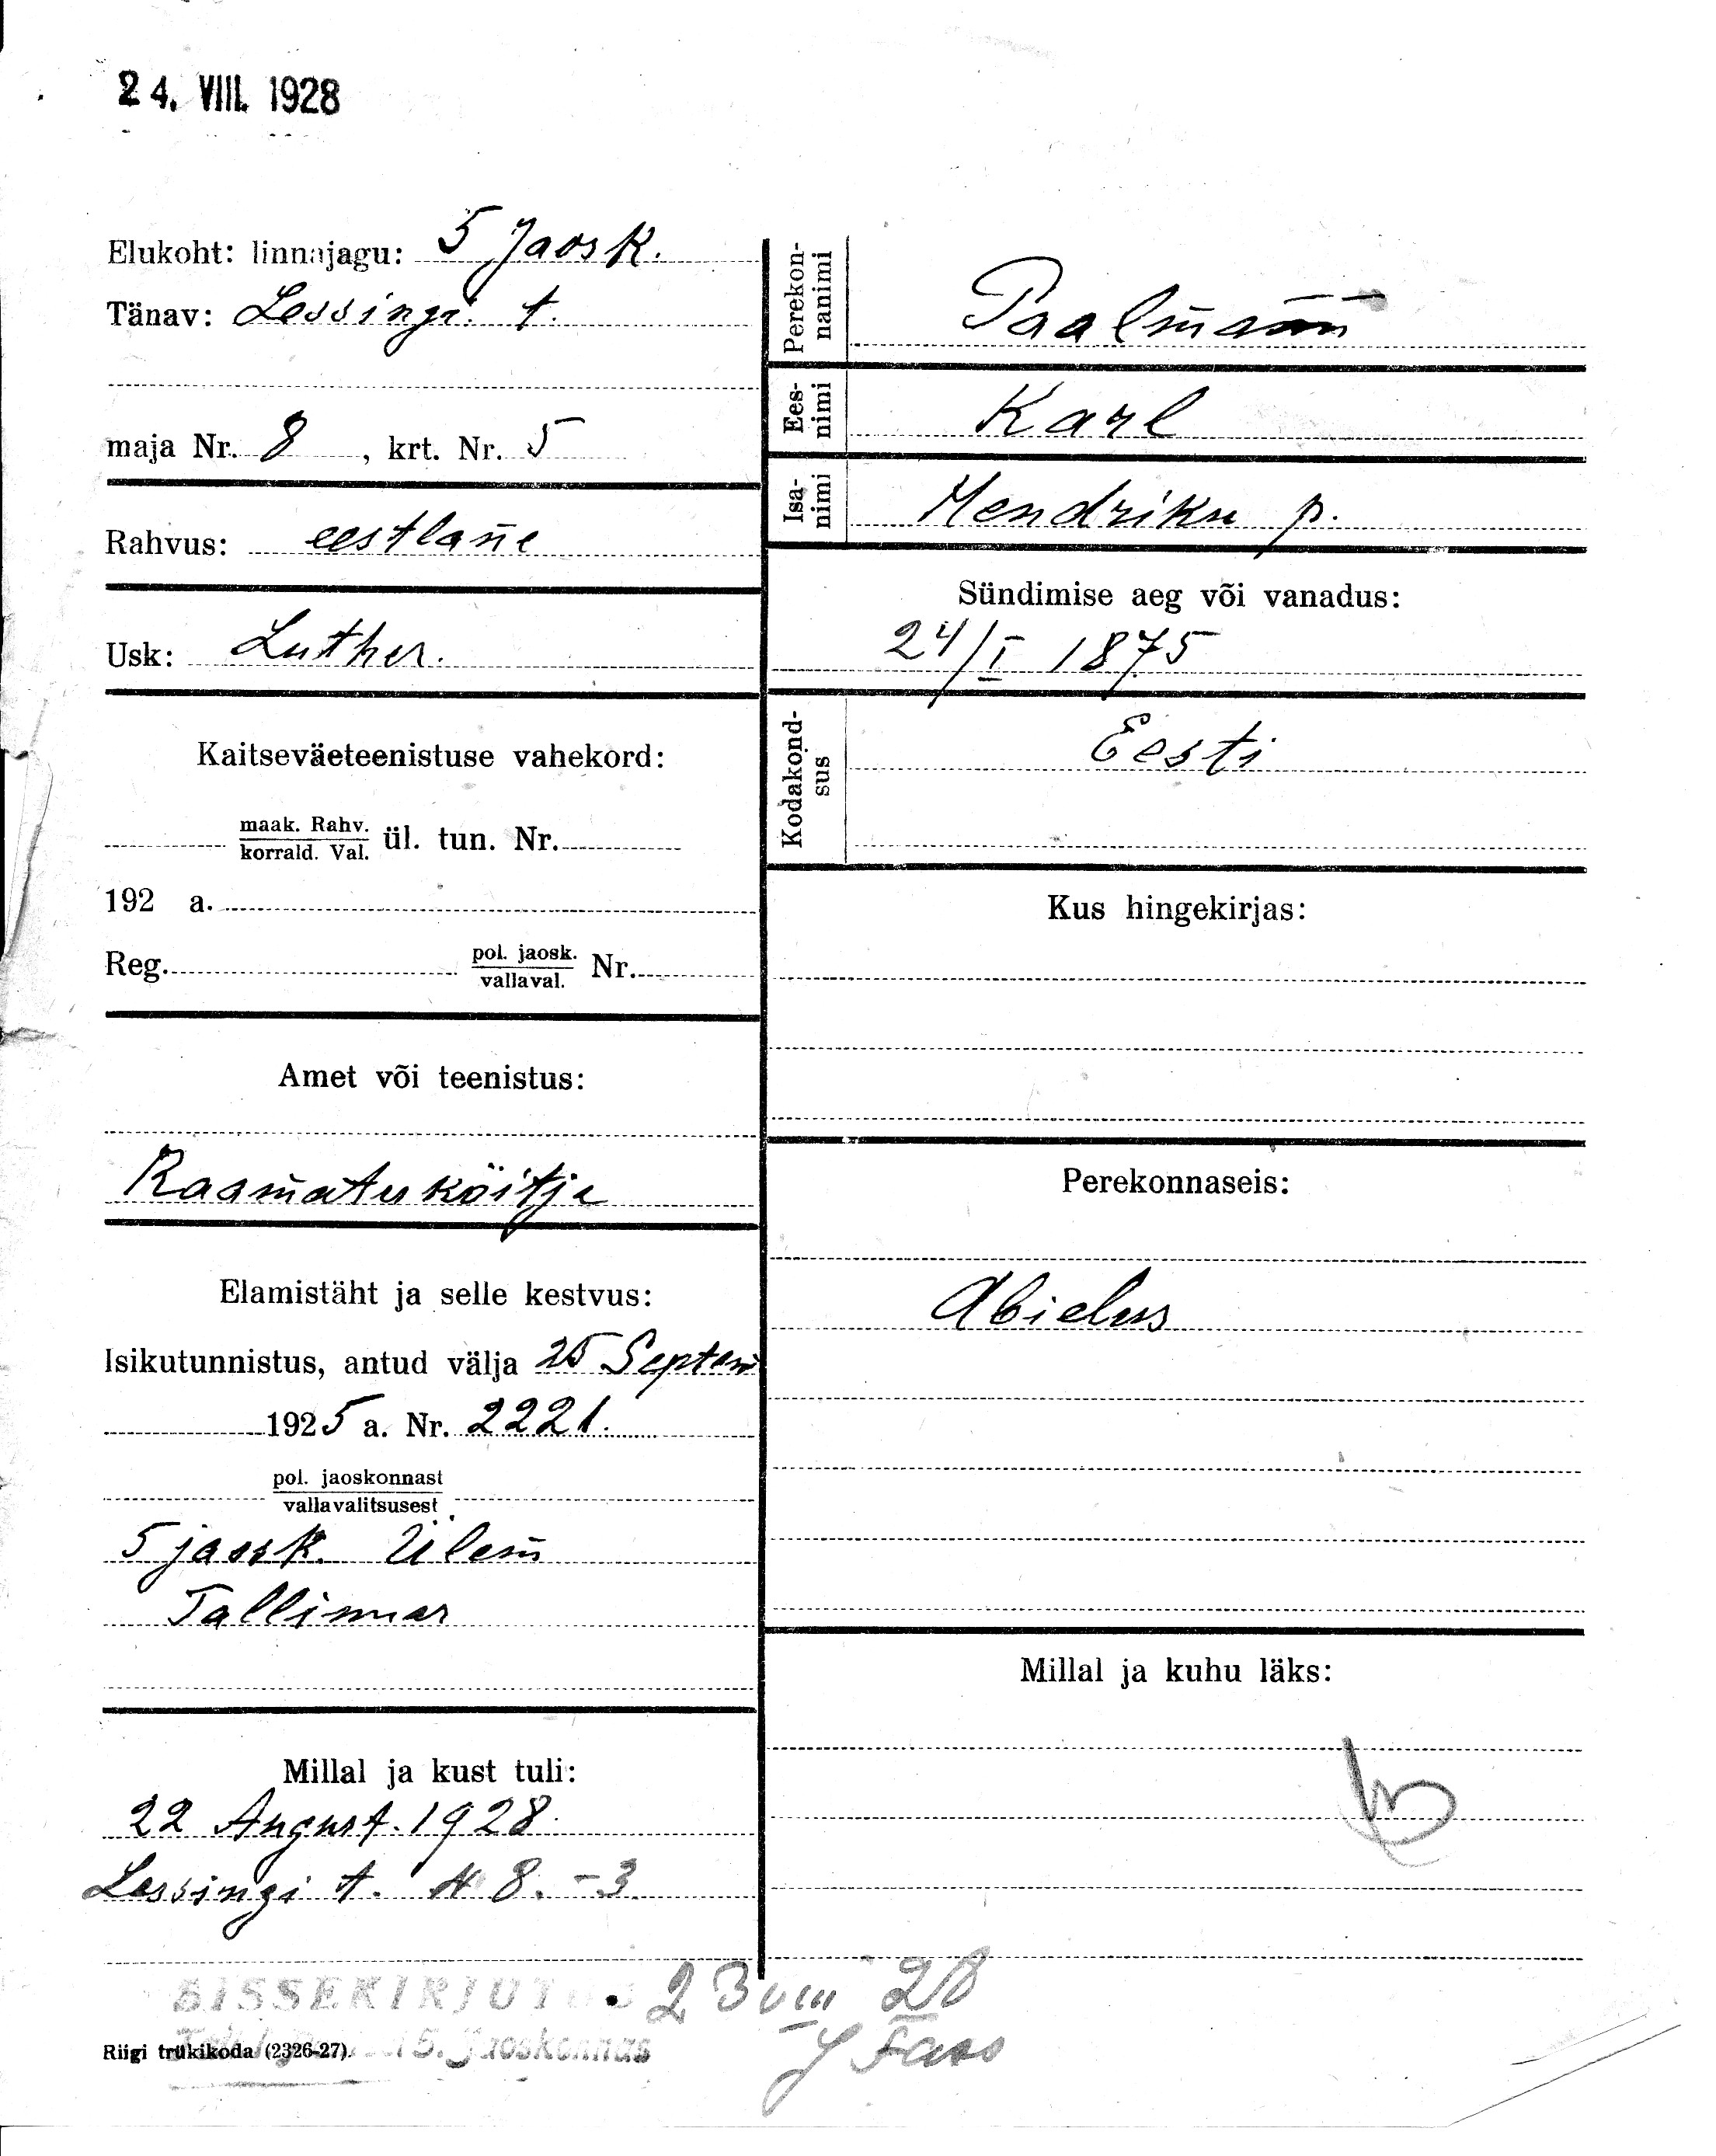 24. VIII. 1928
Elukoht: linnajagu: 5 Jaosk.
Tänav: Lessingi t.
maja Nr. 8, krt. Nr. 5
Rahvus: eestlane
Usk: Luther.
Kaitseväeteenistuse vahekord:
maak. Rahv.
korrald. Val. ül. tun. Nr.
192 a.
Reg. pol. jaosk.
vallaval. Nr.
Amet või teenistus:
Raamatuköitja
Elamistäht ja selle kestvus:
Isikutunnistus, antud välja 25 Septem
1925 a. Nr. 2221.
pol. jaoskonnast
vallavalitsusest
5 jaosk. Ülem
Tallinnas
Millal ja kust tuli:
22 August. 1928.
Lessingi t. N 8. - 3
Perekon-
nanimi
Paalmann
Ees-
nimi
Karl
Isa-
nimi
Hendriku p.
Sündimise aeg või vanadus:
24/I 1875
Kodakond-
sus
Eesti
Kus hingekirjas:
Perekonnaseis:
Abielus
Millal ja kuhu läks:
SISSEKIRJUT
23 VIII 28
5. Jaoskonnas
Riigi trükikoda (2326-27).